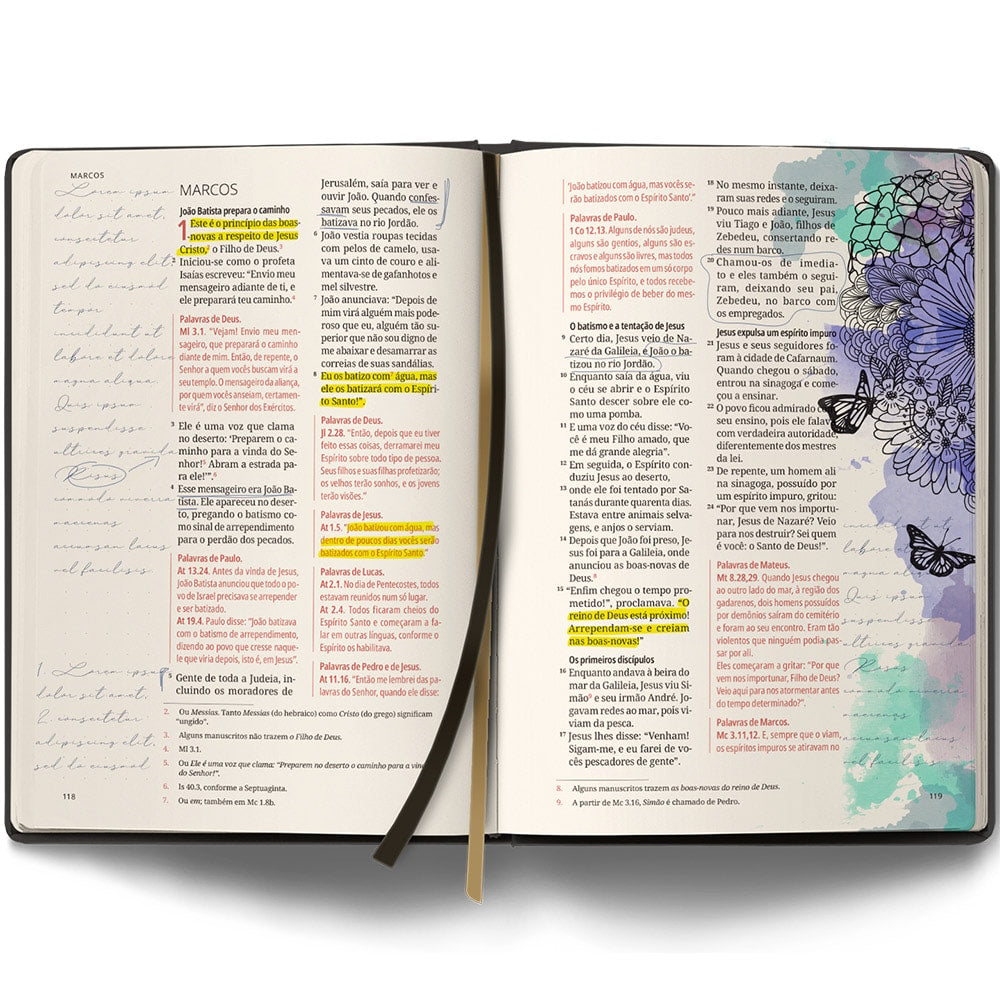 MARCOS
Lorem ipsum
dolor sit amet,
consectetur
adipiscing elit,
sed do eiusmod
tempor
incididunt ut
labore et dolore
magna aliqua.
Quis ipsum
suspendisse
ultrices gravida
Risus
commodo viverra
maecenas
accumsan lacus
vel facilisis.
1. Lorem ipsum
dolor sit amet,
2. consectetur
adipiscing elit,
sed do eiusmod
118
MARCOS
João Batista prepara o caminho
1 Este é o princípio das boas-
-novas a respeito de Jesus
Cristo,² o Filho de Deus.³
2 Iniciou-se como o profeta
Isaías escreveu: “Envio meu
mensageiro adiante de ti, e
ele preparará teu caminho.⁴
Palavras de Deus.
Ml 3.1. “Vejam! Envio meu men-
sageiro, que preparará o caminho
diante de mim. Então, de repente, o
Senhor a quem vocês buscam virá a
seu templo. O mensageiro da aliança,
por quem vocês anseiam, certamen-
te virá”, diz o Senhor dos Exércitos.
3 Ele é uma voz que clama
no deserto: ‘Preparem o ca-
minho para a vinda do Se-
nhor!⁵ Abram a estrada pa-
ra ele!’”.⁶
4 Esse mensageiro era João Ba-
tista. Ele apareceu no deser-
to, pregando o batismo co-
mo sinal de arrependimento
para o perdão dos pecados.
Palavras de Paulo.
At 13.24. Antes da vinda de Jesus,
João Batista anunciou que todo o po-
vo de Israel precisava se arrepender
e ser batizado.
At 19.4. Paulo disse: “João batizava
com o batismo de arrependimento,
dizendo ao povo que cresse naque-
le que viria depois, isto é, em Jesus”.
5 Gente de toda a Judeia, in-
cluindo os moradores de
Jerusalém, saía para ver e
ouvir João. Quando confes-
savam seus pecados, ele os
batizava no rio Jordão.
6 João vestia roupas tecidas
com pelos de camelo, usa-
va um cinto de couro e ali-
mentava-se de gafanhotos e
mel silvestre.
7 João anunciava: “Depois de
mim virá alguém mais pode-
roso que eu, alguém tão su-
perior que não sou digno de
me abaixar e desamarrar as
correias de suas sandálias.
8 Eu os batizo com⁷ água, mas
ele os batizará com o Espíri-
to Santo!”.
Palavras de Deus.
Jl 2.28. “Então, depois que eu tiver
feito essas coisas, derramarei meu
Espírito sobre todo tipo de pessoa.
Seus filhos e suas filhas profetizarão;
os velhos terão sonhos, e os jovens
terão visões.”
Palavras de Jesus.
At 1.5. “João batizou com água, mas
dentro de poucos dias vocês serão
batizados com o Espírito Santo.”
Palavras de Lucas.
At 2.1. No dia de Pentecostes, todos
estavam reunidos num só lugar.
At 2.4. Todos ficaram cheios do
Espírito Santo e começaram a fa-
lar em outras línguas, conforme o
Espírito os habilitava.
Palavras de Pedro e de Jesus.
At 11.16. “Então me lembrei das pa-
lavras do Senhor, quando ele disse:
2. Ou Messias. Tanto Messias (do hebraico) como Cristo (do grego) significam
“ungido”.
3. Alguns manuscritos não trazem o Filho de Deus.
4. Ml 3.1.
5. Ou Ele é uma voz que clama: “Preparem no deserto o caminho para a vinda
do Senhor!”.
6. Is 40.3, conforme a Septuaginta.
7. Ou em; também em Mc 1.8b.
‘João batizou com água, mas vocês se-
rão batizados com o Espírito Santo’.”
Palavras de Paulo.
1 Co 12.13. Alguns de nós são judeus,
alguns são gentios, alguns são es-
cravos e alguns são livres, mas todos
nós fomos batizados em um só corpo
pelo único Espírito, e todos recebe-
mos o privilégio de beber do mes-
mo Espírito.
O batismo e a tentação de Jesus
9 Certo dia, Jesus veio de Na-
zaré da Galileia, e João o ba-
tizou no rio Jordão.
10 Enquanto saía da água, viu
o céu se abrir e o Espírito
Santo descer sobre ele co-
mo uma pomba.
11 E uma voz do céu disse: “Vo-
cê é meu Filho amado, que
me dá grande alegria”.
12 Em seguida, o Espírito con-
duziu Jesus ao deserto,
13 onde ele foi tentado por Sa-
tanás durante quarenta dias.
Estava entre animais selva-
gens, e anjos o serviam.
14 Depois que João foi preso, Je-
sus foi para a Galileia, onde
anunciou as boas-novas de
Deus.⁸
15 “Enfim chegou o tempo pro-
metido!”, proclamava. “O
reino de Deus está próximo!
Arrependam-se e creiam
nas boas-novas!”
Os primeiros discípulos
16 Enquanto andava à beira do
mar da Galileia, Jesus viu Si-
mão⁹ e seu irmão André. Jo-
gavam redes ao mar, pois vi-
viam da pesca.
17 Jesus lhes disse: “Venham!
Sigam-me, e eu farei de vo-
cês pescadores de gente”.
18 No mesmo instante, deixa-
ram suas redes e o seguiram.
19 Pouco mais adiante, Jesus
viu Tiago e João, filhos de
Zebedeu, consertando re-
des num barco.
20 Chamou-os de imedia-
to e eles também o segui-
ram, deixando seu pai,
Zebedeu, no barco com
os empregados.
Jesus expulsa um espírito impuro
21 Jesus e seus seguidores fo-
ram à cidade de Cafarnaum.
Quando chegou o sábado,
entrou na sinagoga e come-
çou a ensinar.
22 O povo ficou admirado co
seu ensino, pois ele falav
com verdadeira autoridade,
diferentemente dos mestres
da lei.
23 De repente, um homem ali
na sinagoga, possuído por
um espírito impuro, gritou:
24 “Por que vem nos importu-
nar, Jesus de Nazaré? Veio
para nos destruir? Sei quem
é você: o Santo de Deus!”.
Palavras de Mateus.
Mt 8.28,29. Quando Jesus chegou
ao outro lado do mar, à região dos
gadarenos, dois homens possuídos
por demônios saíram do cemitério
e foram ao seu encontro. Eram tão
violentos que ninguém podia pas-
sar por ali.
Eles começaram a gritar: “Por que
vem nos importunar, Filho de Deus?
Veio aqui para nos atormentar antes
do tempo determinado?”.
Palavras de Marcos.
Mc 3.11,12. E, sempre que o viam,
os espíritos impuros se atiravam no
8. Alguns manuscritos trazem as boas-novas do reino de Deus.
9. A partir de Mc 3.16, Simão é chamado de Pedro.
labore et
magna aliqua
Quis ipsum
suspendisse
ultrices gravida
Risus
commodo viverra
maecenas
accumsan lacus
vel facilisis.
119